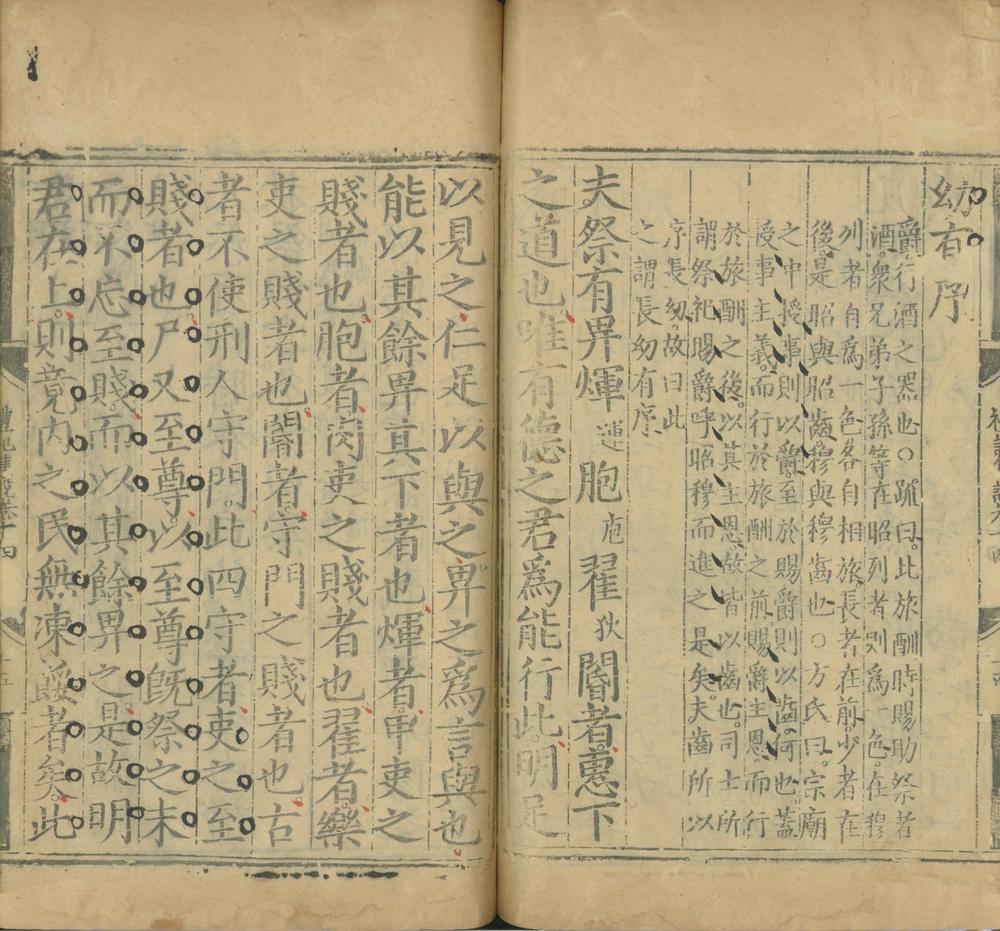 幼有序
爵行酒之器也○疏曰此旅酬時賜助祭者
酒衆兄弟子孫等在昭列者則為一色在穆
列者自為一色各自相旅長者在前少者在
後是昭與昭齒穆與穆齒也○方氏曰宗廟
之中授事則以爵至於賜爵則以齒何也蓋
授事主義而行於旅酬之前賜爵主恩而行
於旅酬之後以其主恩故皆以齒也司士所
謂祭祀賜爵呼昭穆而進之是矣夫齒所以
序長幼故曰此
之謂長幼有序
夫祭有畀煇運胞庖翟狄閽者惠下
之道也唯有德之君為能行此明足
以見之仁足以與之畀之為言與也
能以其餘畀其下者也煇者甲吏之
賤者也胞者肉吏之賤者也翟者樂
吏之賤者也閽者守門之賤者也古
者不使刑人守門此四守者吏之至
賤者也尸又至尊以至尊旣祭之末
而不忘至賤而以其餘畀之是故明
君在上則竟內之民無凍餒者矣此